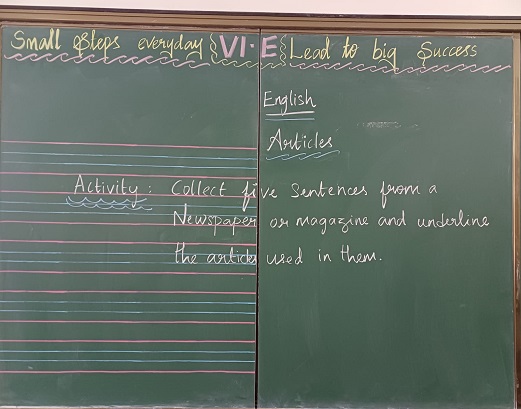 Small Steps everyday {VI-E} Lead to big Success
English
Articles
Activity: Collect five Sentences from a
Newspaper or magazine and underline
the articles used in them.